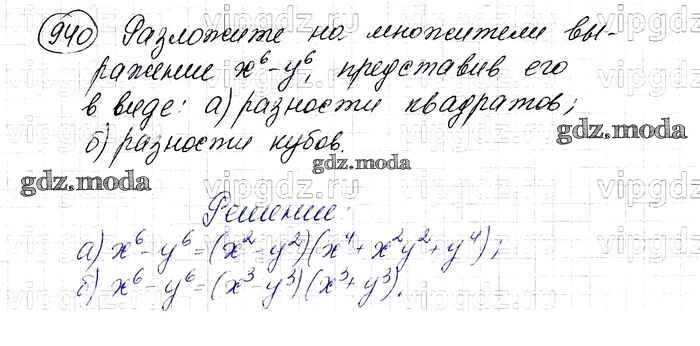 940 Разложите на множители вы-
ражение x⁶-y⁶, представив его
в виде: а) разности квадратов;
б) разности кубов.
gdz.moda
gdz.moda
gdz.moda
Решение:
а) x⁶-y⁶=(x²-y²)(x⁴+x²y²+y⁴);
б) x⁶-y⁶=(x³-y³)(x³+y³).
vipgdz